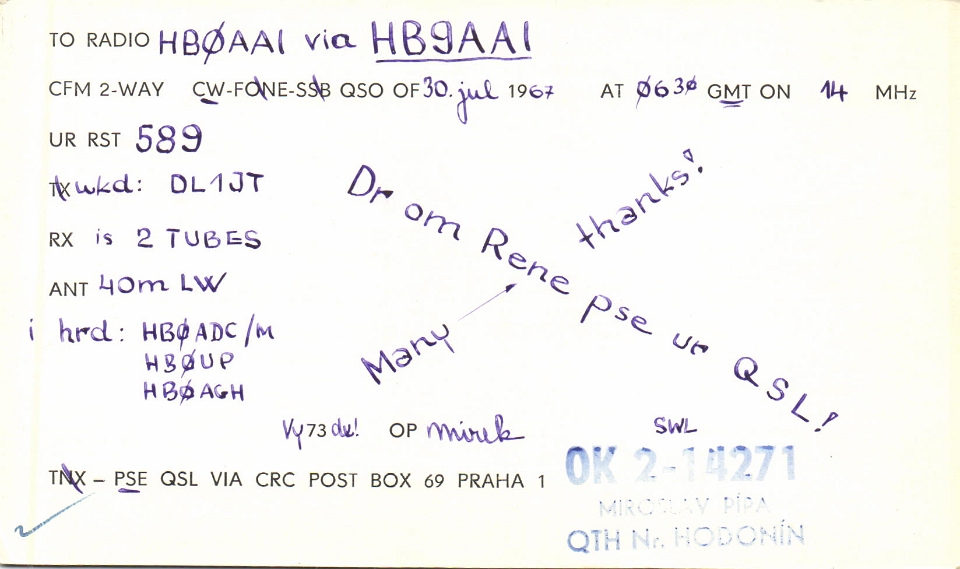 TO RADIO HBØAAI via HB9AAI
CFM 2-WAY CW-FONE-SSB QSO OF 30. jul 1967 AT Ø63Ø GMT ON 14 MHz
UR RST 589
TX wkd: DL1JT
RX is 2 TUBES
ANT 40m LW
i hrd: HBØADC/M
HBØUP
HBØAGH
Dr om Rene pse ur QSL!
Many thanks!
Vy 73 OP Mirek
SWL
TNX – PSE QSL VIA CRC POST BOX 69 PRAHA 1
OK 2-14271
MIROSLAV PÍPA
QTH Nr. HODONÍN